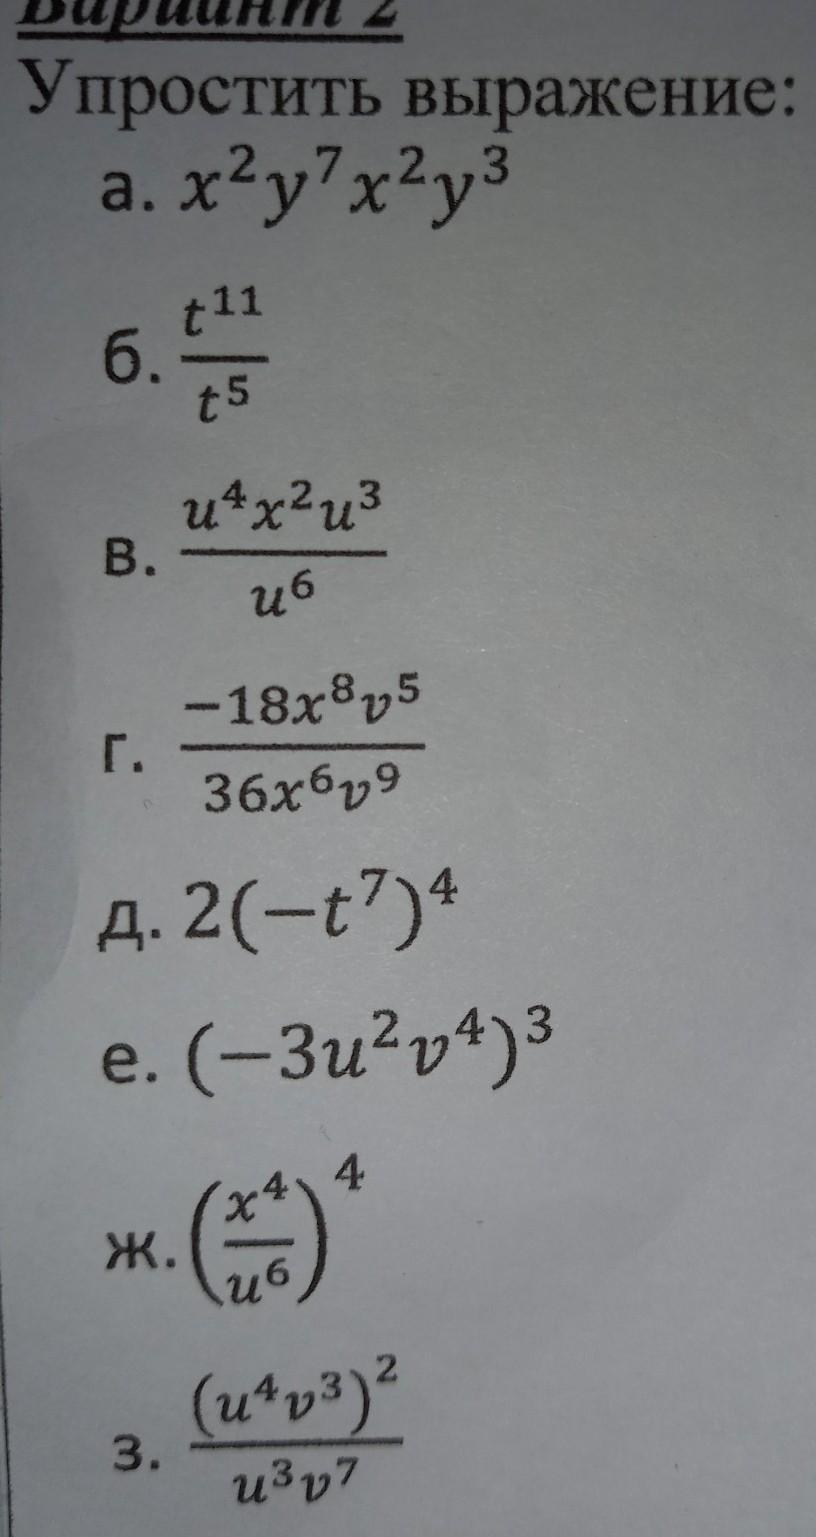 Вариант 2
Упростить выражение:
а. x²y⁷x²y³
б. t¹¹/t⁵
в. u⁴x²u³/u⁶
г. −18x⁸v⁵/36x⁶v⁹
д. 2(−t⁷)⁴
е. (−3u²v⁴)³
ж. (x⁴/u⁶)⁴
з. (u⁴v³)²/u³v⁷